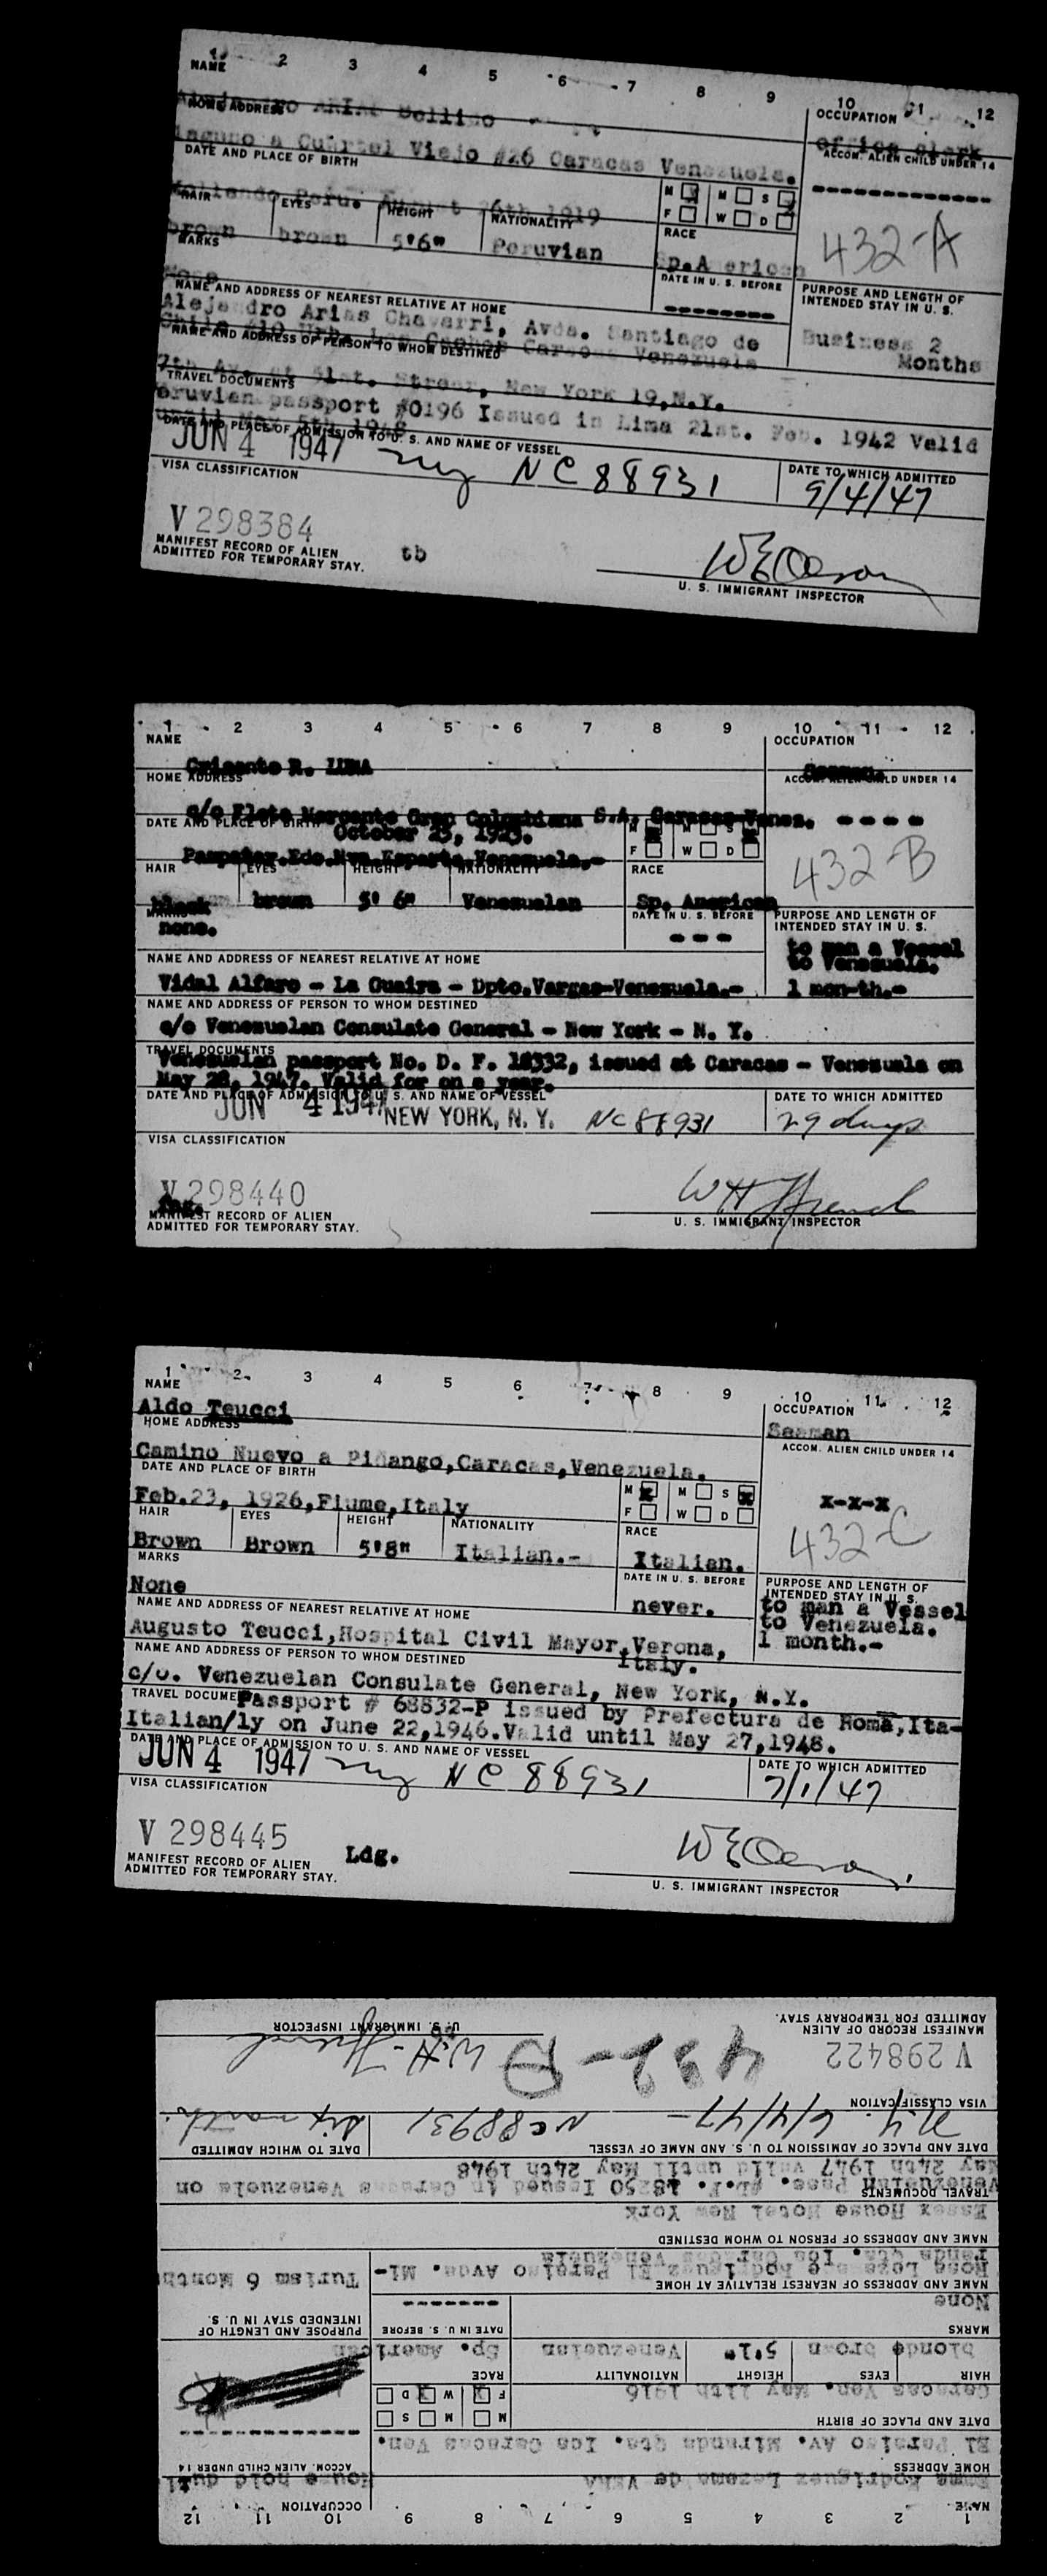 1 2 3 4 5 6 7 8 9 10 11 12
NAME
OCCUPATION
ARIAS Bellido
office clerk
HOME ADDRESS
ACCOM. ALIEN CHILD UNDER 14
a Cuartel Viejo #26 Caracas Venezuela.
DATE AND PLACE OF BIRTH
M M S
F W D
Mollendo Peru. August 26th 1919
432-A
HAIR EYES HEIGHT NATIONALITY RACE
brown brown 5'6" Peruvian Sp.American
MARKS
DATE IN U. S. BEFORE
PURPOSE AND LENGTH OF INTENDED STAY IN U. S.
None
--------
NAME AND ADDRESS OF NEAREST RELATIVE AT HOME
Alejandro Arias Chavarri, Avda. Santiago de
Business 2
Months
Chile #10 Urb. Los Caobos Caracas Venezuela
NAME AND ADDRESS OF PERSON TO WHOM DESTINED
7th Ave at 51st. Street, New York 19,N.Y.
TRAVEL DOCUMENTS
Peruvian passport #0196 Issued in Lima 21st. Feb. 1942 Valid
until May 5th 1948
DATE AND PLACE OF ADMISSION TO U. S. AND NAME OF VESSEL
DATE TO WHICH ADMITTED
JUN 4 1947 ny NC 88931
9/4/47
VISA CLASSIFICATION
V 298384
tb
MANIFEST RECORD OF ALIEN
ADMITTED FOR TEMPORARY STAY.
U. S. IMMIGRANT INSPECTOR
1 2 3 4 5 6 7 8 9 10 11 12
NAME
OCCUPATION
R. LUNA
Seaman.
HOME ADDRESS
ACCOM. ALIEN CHILD UNDER 14
c/o Flota Mercante Gran Colombiana S.A. Caracas-Venez.
----
DATE AND PLACE OF BIRTH
October 25, 1923.
M M S
F W D
Pampatar.Edo.Nva.Esparta.Venezuela.-
432-B
HAIR EYES HEIGHT NATIONALITY RACE
black brown 5' 6" Venezuelan Sp. American
MARKS
DATE IN U. S. BEFORE
PURPOSE AND LENGTH OF
INTENDED STAY IN U. S.
none.
---
to man a Vessel
to Venezuela.
NAME AND ADDRESS OF NEAREST RELATIVE AT HOME
Vidal Alfaro - La Guaira - Dpto.Vargas-Venezuela.-
1 mon-th.-
NAME AND ADDRESS OF PERSON TO WHOM DESTINED
c/o Venezuelan Consulate General - New York - N. Y.
TRAVEL DOCUMENTS
Venezuelan passport No. D. F. 18332, issued at Caracas - Venezuela on
May 28, 1947. Valid for on e year.
DATE AND PLACE OF ADMISSION TO U. S. AND NAME OF VESSEL
DATE TO WHICH ADMITTED
JUN 4 1947 NEW YORK, N. Y. NC 88931
29 days
VISA CLASSIFICATION
V 298440
MANIFEST RECORD OF ALIEN
ADMITTED FOR TEMPORARY STAY.
U. S. IMMIGRANT INSPECTOR
1 2 3 4 5 6 7 8 9 10 11 12
NAME
OCCUPATION
Aldo Teucci
Seaman
HOME ADDRESS
ACCOM. ALIEN CHILD UNDER 14
Camino Nuevo a Piñango,Caracas,Venezuela.
DATE AND PLACE OF BIRTH
M M S
F W D
x-x-x
Feb.23, 1926,Fiume,Italy
432-C
HAIR EYES HEIGHT NATIONALITY RACE
Brown Brown 5'8" Italian.- Italian.
MARKS
DATE IN U. S. BEFORE
PURPOSE AND LENGTH OF
INTENDED STAY IN U. S.
None
never.
to man a Vessel
to Venezuela.
1 month.-
NAME AND ADDRESS OF NEAREST RELATIVE AT HOME
Augusto Teucci,Hospital Civil Mayor,Verona,
Italy.
NAME AND ADDRESS OF PERSON TO WHOM DESTINED
c/o. Venezuelan Consulate General, New York, N.Y.
TRAVEL DOCUMENTS
Passport # 68832-P issued by Prefectura de Roma,Ita-
Italian/ly on June 22,1946.Valid until May 27,1948.
DATE AND PLACE OF ADMISSION TO U. S. AND NAME OF VESSEL
DATE TO WHICH ADMITTED
JUN 4 1947 ny NC 88931
7/1/47
VISA CLASSIFICATION
V 298445
Ldg.
MANIFEST RECORD OF ALIEN
ADMITTED FOR TEMPORARY STAY.
U. S. IMMIGRANT INSPECTOR
1 2 3 4 5 6 7 8 9 10 11 12
NAME
OCCUPATION
Rodriguez Lezama de VERA
House hold duti
HOME ADDRESS
ACCOM. ALIEN CHILD UNDER 14
El Paraiso Av. Miranda Qta. Ica Caracas Ven.
DATE AND PLACE OF BIRTH
M M S
F W D
Caracas Ven. May 11th 1916
HAIR EYES HEIGHT NATIONALITY RACE
blonde brown 5'1" Venezuelan Sp. American
MARKS
DATE IN U. S. BEFORE
PURPOSE AND LENGTH OF
INTENDED STAY IN U. S.
None
-------
NAME AND ADDRESS OF NEAREST RELATIVE AT HOME
Rosa Lezama de Rodriguez El Paraiso Avda. Mi-
Turism 6 Month
randa Qta. Ica Caracas Venezuela
NAME AND ADDRESS OF PERSON TO WHOM DESTINED
Essex House Hotel New York
TRAVEL DOCUMENTS
Venezuelan Pass. #D.F. 18250 Issued in Caracas Venezuela on
May 24th 1947 valid until May 24th 1948
DATE AND PLACE OF ADMISSION TO U. S. AND NAME OF VESSEL
DATE TO WHICH ADMITTED
N.Y. 6/4/47- NC88931
six months
VISA CLASSIFICATION
V 298422
432-D
MANIFEST RECORD OF ALIEN
ADMITTED FOR TEMPORARY STAY.
U. S. IMMIGRANT INSPECTOR